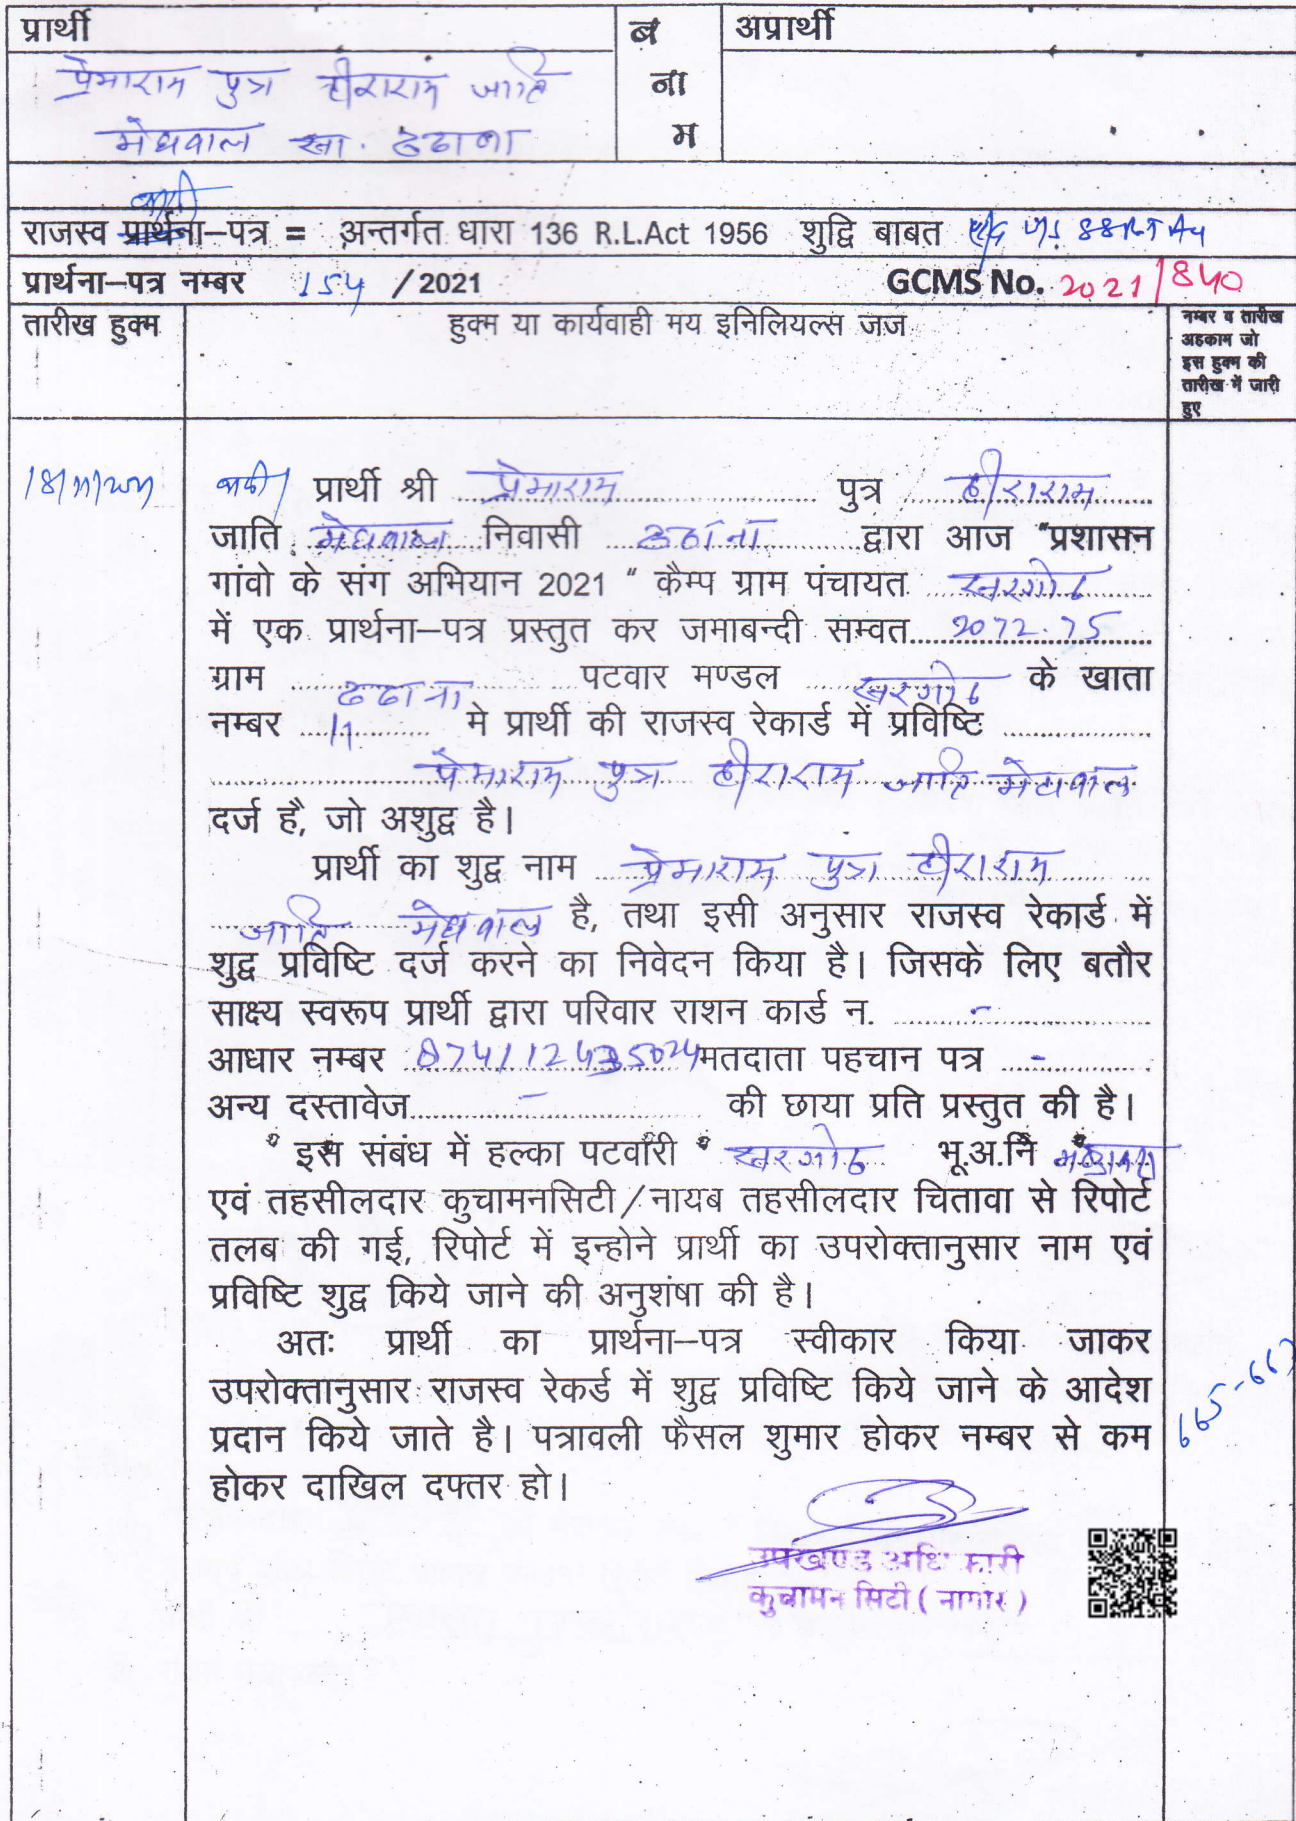 प्रार्थी
ब
ना
म
अप्रार्थी
प्रेमाराम पुत्र हीराराम जाति
मेघवाल सा. ढढाना
वादी
राजस्व प्रार्थना–पत्र = अन्तर्गत धारा 136 R.L.Act 1956 शुद्वि बाबत
प्रार्थना–पत्र नम्बर 154 /2021 GCMS No. 2021/840
तारीख हुक्म
हुक्म या कार्यवाही मय इनिलियल्स जज
नम्बर व तारीख
अहकाम जो
इस हुक्म की
तारीख में जारी
हुए
18/11/2021
वादी प्रार्थी श्री प्रेमाराम पुत्र हीराराम
जाति मेघवाल निवासी ढढाना द्वारा आज "प्रशासन
गांवो के संग अभियान 2021 " कैम्प ग्राम पंचायत खरगोठ
में एक प्रार्थना–पत्र प्रस्तुत कर जमाबन्दी सम्वत 2072-75
ग्राम ढढाना पटवार मण्डल खरगोठ के खाता
नम्बर 11 मे प्रार्थी की राजस्व रेकार्ड में प्रविष्टि
पेमाराम पुत्र हीराराम जाति मेघवाल
दर्ज है, जो अशुद्व है।
प्रार्थी का शुद्व नाम प्रेमाराम पुत्र हीराराम
जाति मेघवाल है, तथा इसी अनुसार राजस्व रेकार्ड में
शुद्व प्रविष्टि दर्ज करने का निवेदन किया है। जिसके लिए बतौर
साक्ष्य स्वरूप प्रार्थी द्वारा परिवार राशन कार्ड न. -
आधार नम्बर मतदाता पहचान पत्र -
अन्य दस्तावेज - की छाया प्रति प्रस्तुत की है।
इस संबंध में हल्का पटवारी खरगोठ भू.अ.नि
एवं तहसीलदार कुचामनसिटी/नायब तहसीलदार चितावा से रिपोर्ट
तलब की गई, रिपोर्ट में इन्होने प्रार्थी का उपरोक्तानुसार नाम एवं
प्रविष्टि शुद्व किये जाने की अनुशंषा की है।
अतः प्रार्थी का प्रार्थना–पत्र स्वीकार किया जाकर
उपरोक्तानुसार राजस्व रेकर्ड में शुद्व प्रविष्टि किये जाने के आदेश
प्रदान किये जाते है। पत्रावली फैसल शुमार होकर नम्बर से कम
होकर दाखिल दफ्तर हो।
उपखण्ड अधिकारी
कुचामन सिटी ( नागौर )